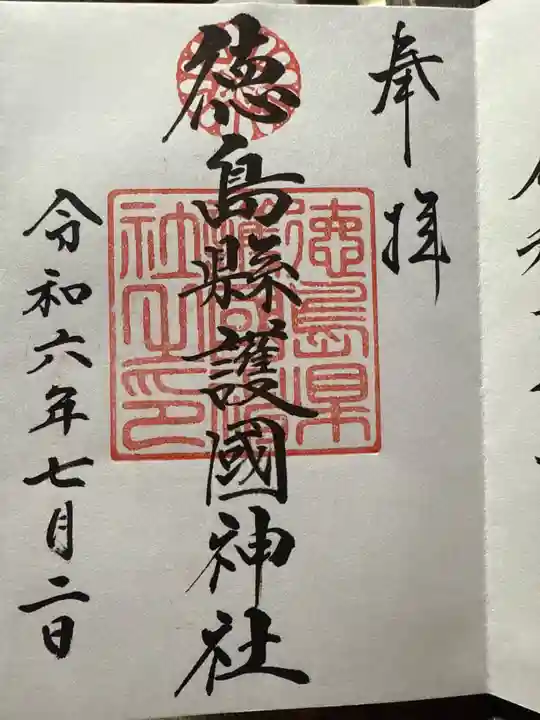 奉拝
徳島縣護國神社
徳島県護國神社之印
令和六年七月二日